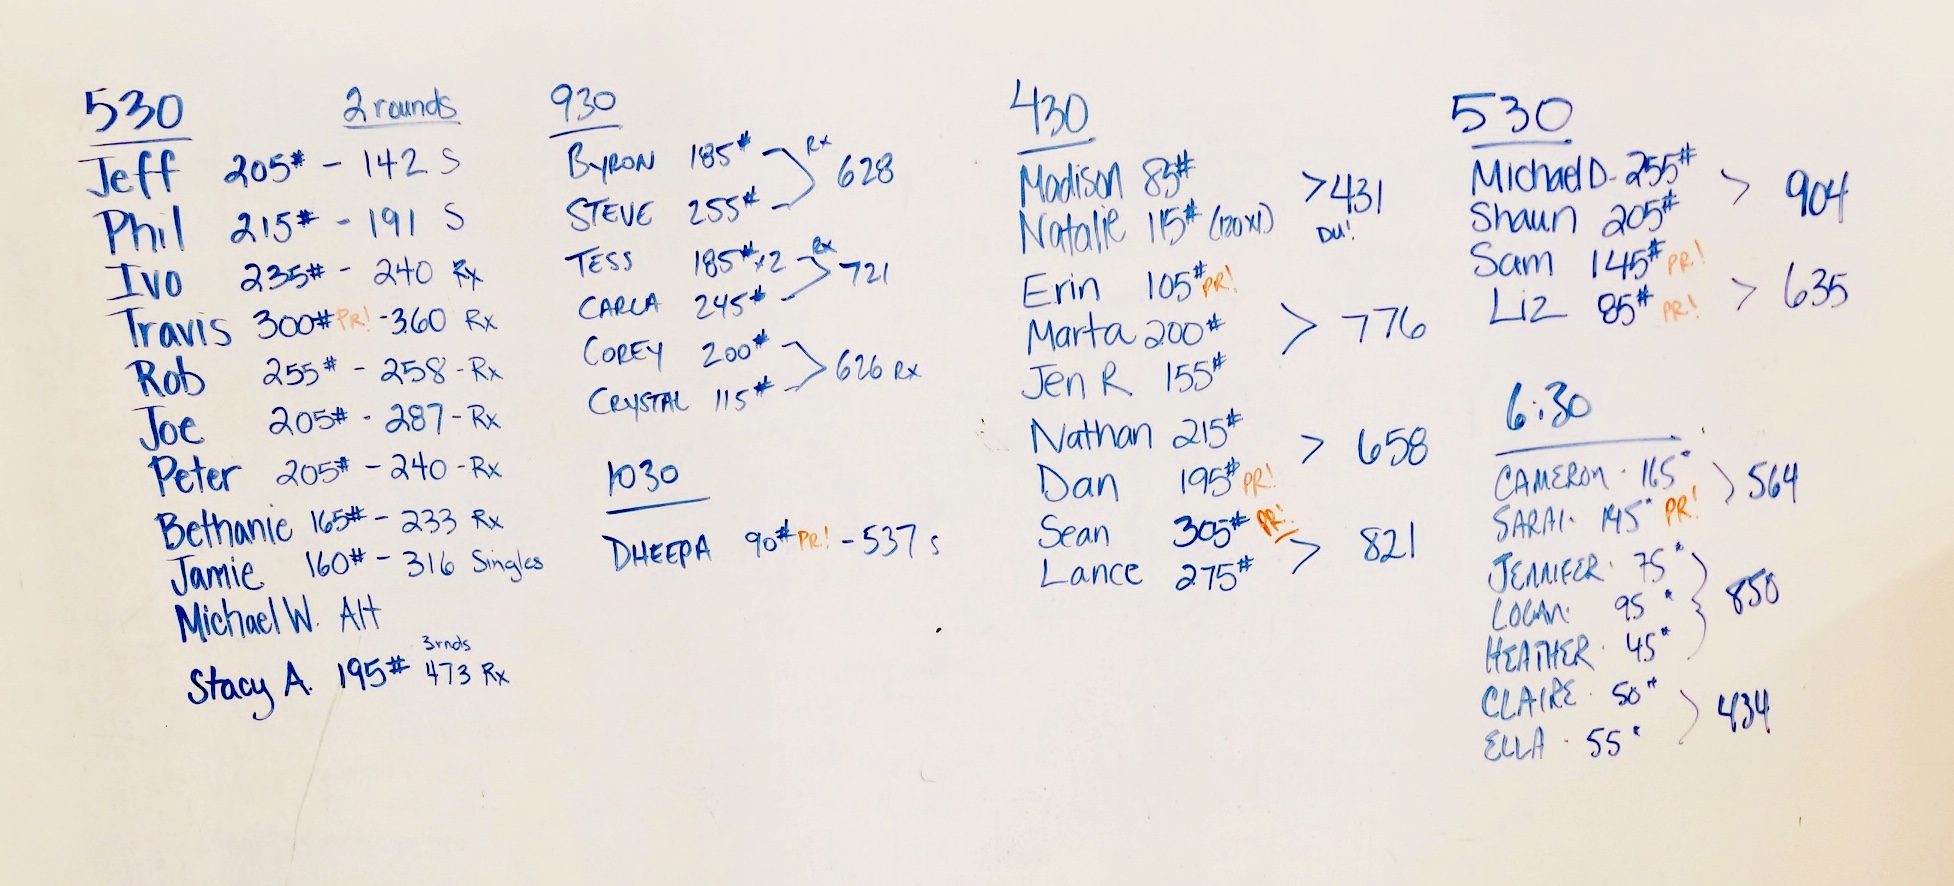 530 2 rounds
Jeff 205# - 142 S
Phil 215# - 191 S
Ivo 235# - 240 Rx
Travis 300# PR! - 360 Rx
Rob 255# - 258 - Rx
Joe 205# - 287 - Rx
Peter 205# - 240 - Rx
Bethanie 165# - 233 Rx
Jamie 160# - 316 Singles
Michael W. Alt
3 rnds
Stacy A. 195# 473 Rx
930
BYRON 185# Rx
628
STEVE 255#
TESS 185# x2 Rx
721
CARLA 245#
COREY 200#
626 Rx
CRYSTAL 115#
1030
DHEEPA 90# PR! - 537 s
430
Madison 83#
>431
Natalie 115# (120x1) DU!
Erin 105# PR!
Marta 200# > 776
Jen R 155#
Nathan 215#
> 658
Dan 195# PR!
Sean 305# PR!
> 821
Lance 275#
530
Michael D. 255#
> 904
Shaun 205#
Sam 145# PR!
> 635
Liz 85# PR!
6:30
CAMERON. 165#
564
SARAI. 145# PR!
JENNIFER. 75#
LOGAN. 95# 850
HEATHER. 45#
CLAIRE. 50#
434
ELLA. 55#